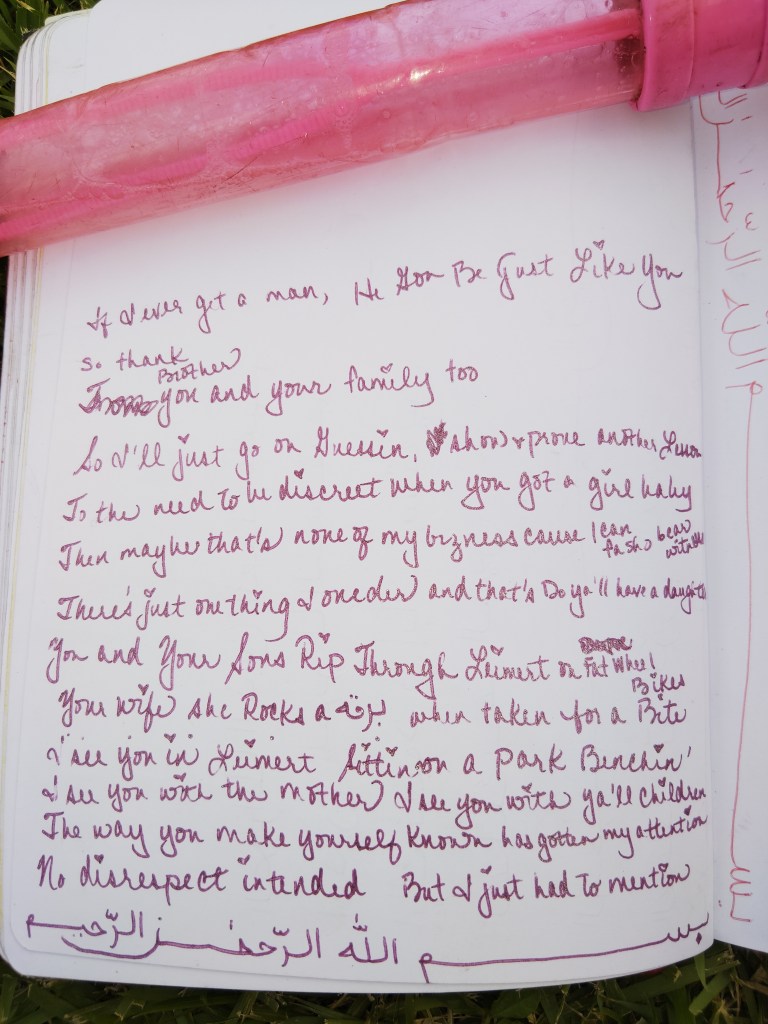 If I ever get a man, He Gon Be Just Like You
so thank Brother
you and your family too
So I'll just go on Guessin, show & prove another Lesson
To the need to be discreet when you got a girl baby
Then maybe that's none of my bizness cause I can fasho bear witness
There's just one thing I oneder and that's Do ya'll have a daughter
You and Your Sons Rip Through Leimert on Fat Wheel Bikes
Your wife she Rocks a برقة when taken for a Bite
I see you in Leimert Sittin on a Park Benchin'
I see you with the mother I see you with ya'll children
The way you make yourself Known has gotten my attention
No disrespect intended But I just had to mention
بسم الله الرّحمن الرّحيم